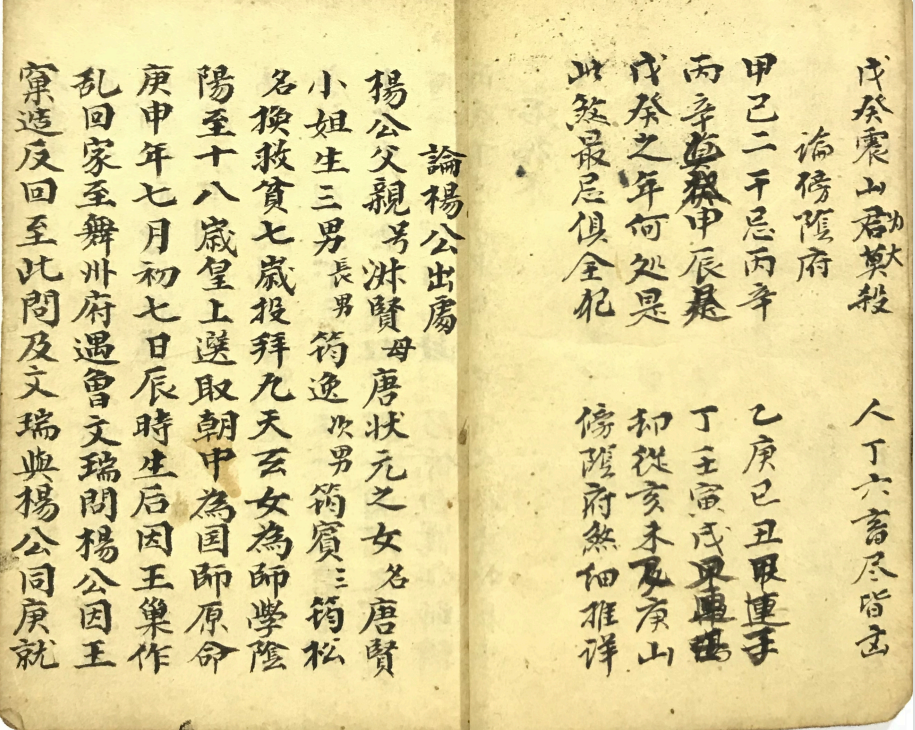 戊癸震山君莫殺 人丁六畜尽皆凶
為大
論傍陰府
甲己二干忌丙辛 乙庚己丑連
丙辛甲辰是 丁壬寅戌
戊癸之年何処是 却從亥未庚山
此煞最忌俱全犯 傍陰府煞細推詳
論楊公出處
楊公父親号淋賢母唐状元之女名唐賢
小姐生三男長男筠逸次男筠賓三筠松
名換救貧七歲投拜九天玄女為師學陰
陽至十八歲皇上選取朝中為国師原命
庚申年七月初七日辰時生后因王巢作
乱回家至舞州府遇曾文瑞問楊公因王
窠造反回至此問及文瑞與楊公同庚就